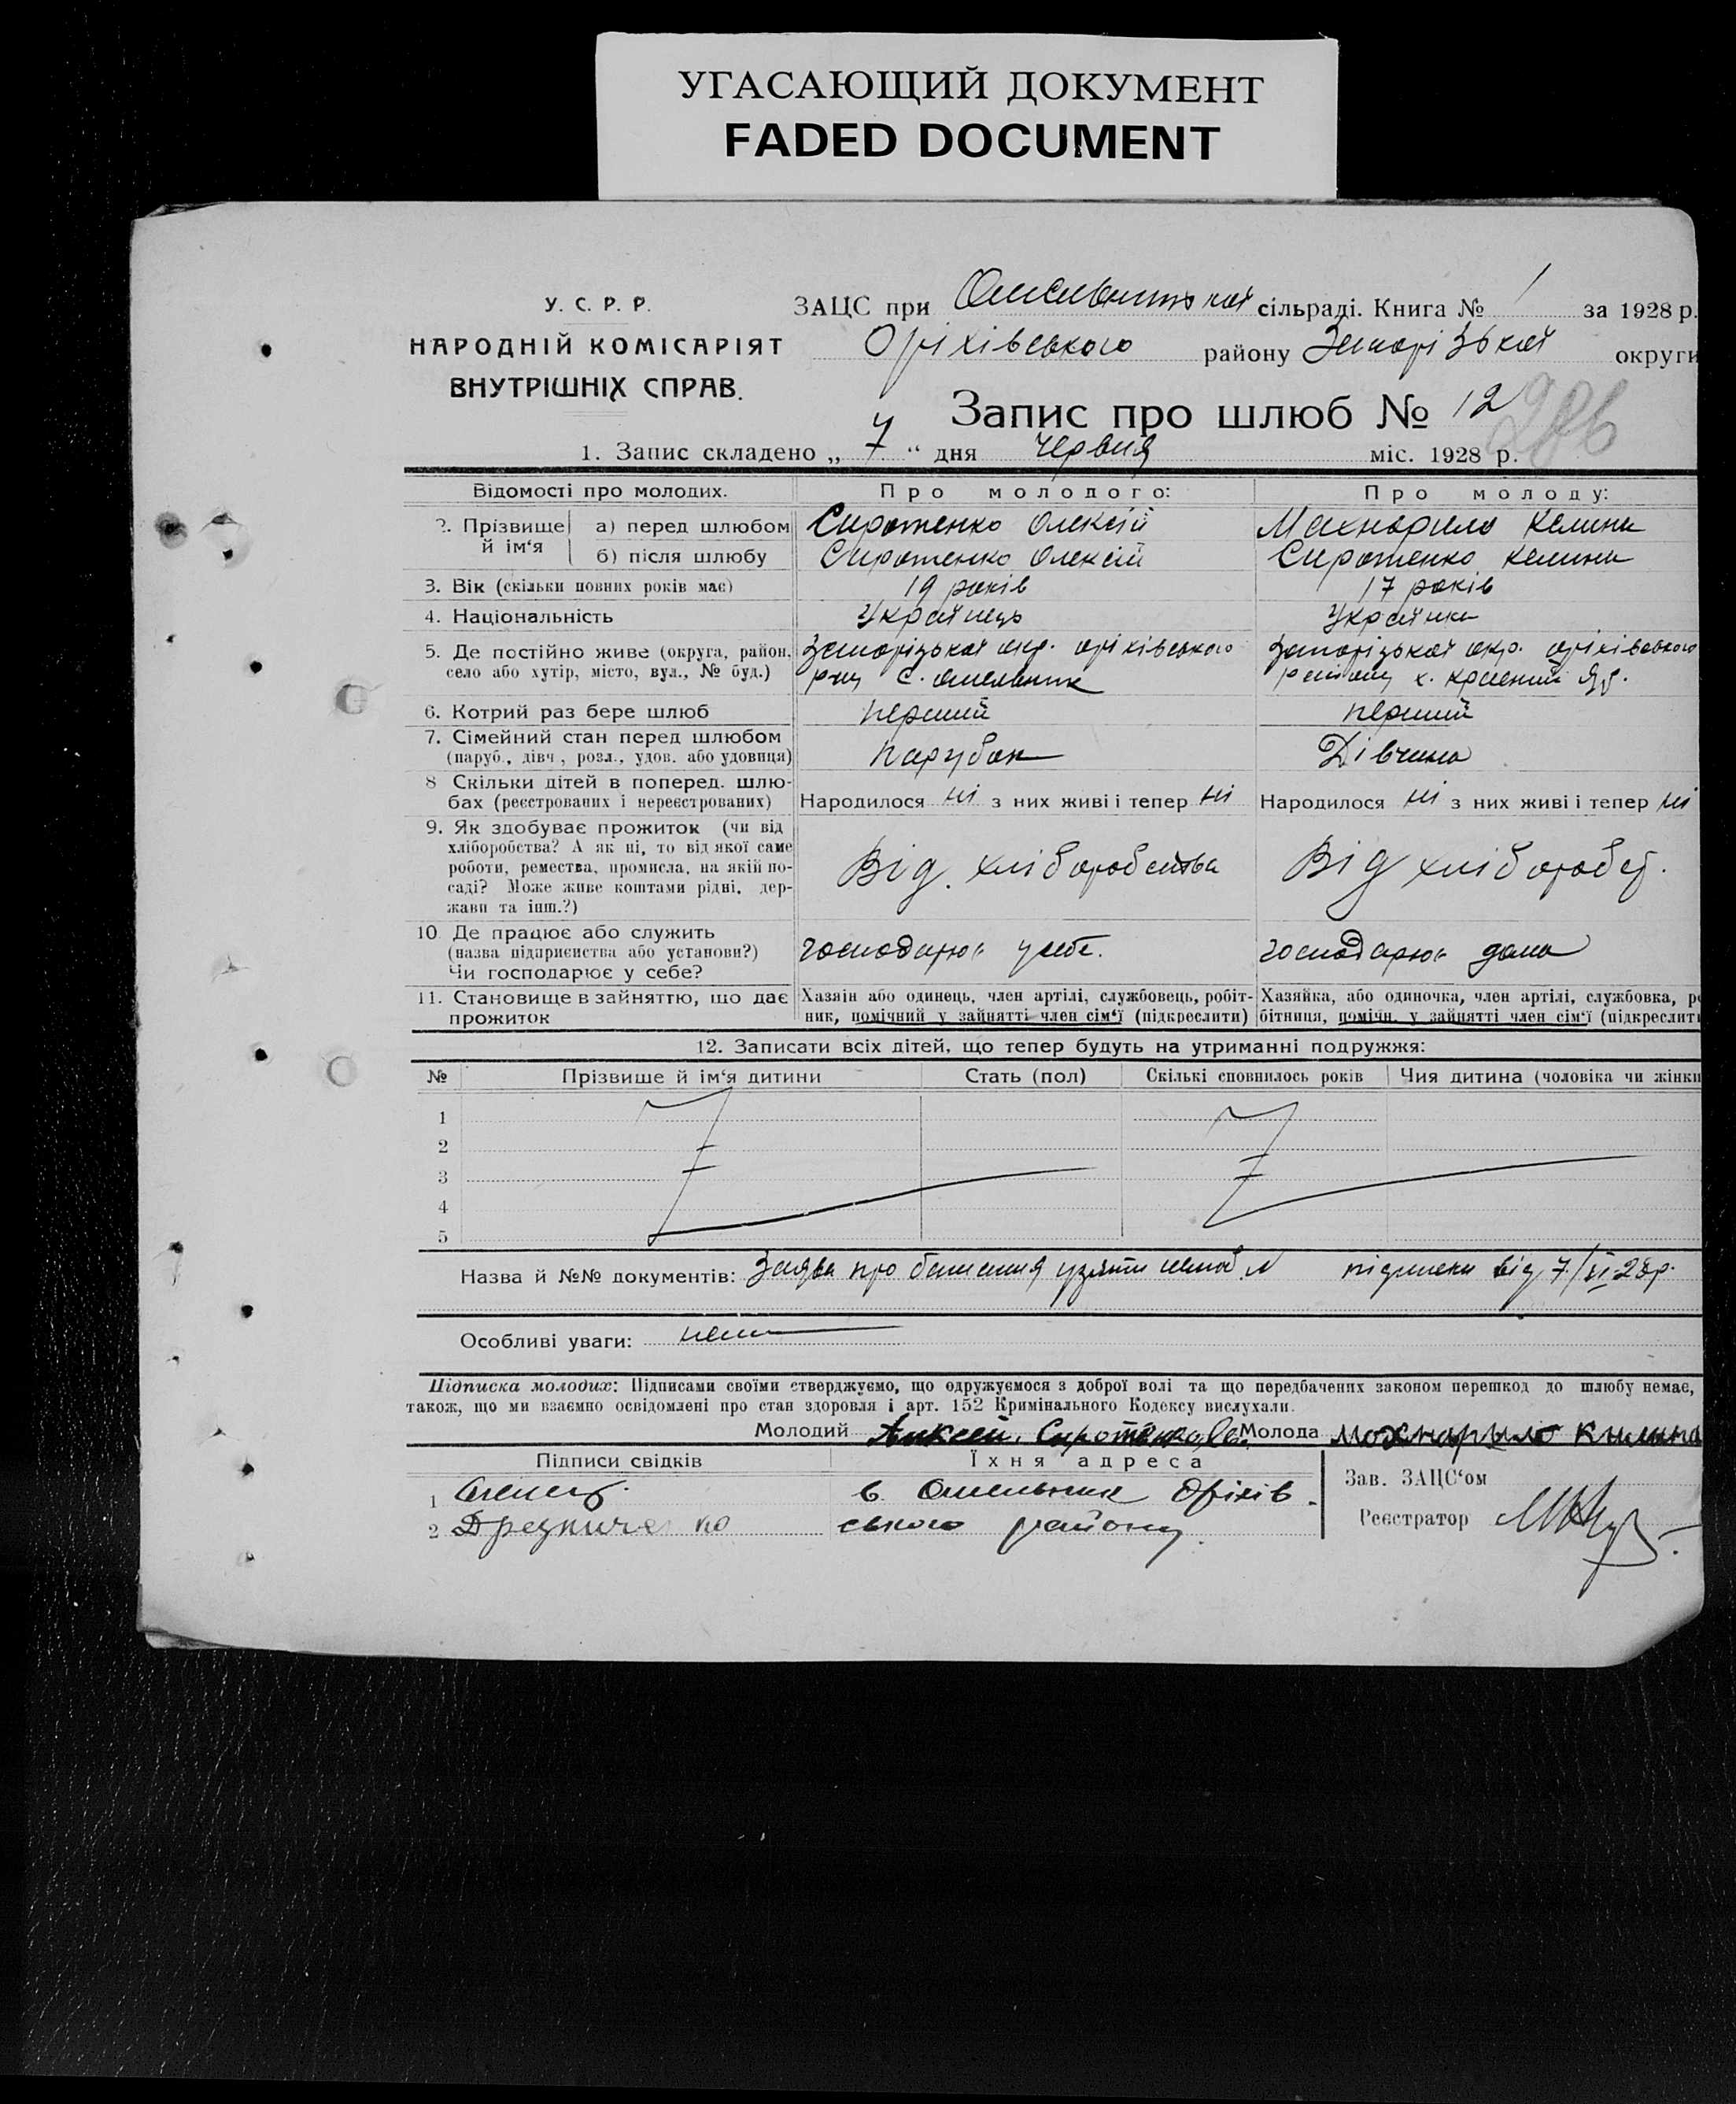 УГАСАЮЩИЙ ДОКУМЕНТ
FADED DOCUMENT
У. С. Р. Р.
НАРОДНІЙ КОМІСАРІЯТ
ВНУТРІШНІХ СПРАВ.
ЗАЦС при Омельницької сільраді. Книга № 1 за 1928 р.
Оріхівського району Запорізької округи
Запис про шлюб № 12
286
1. Запис складено „ 7 “ дня червня міс. 1928 р.
Відомості про молодих. Про молодого: Про молоду:
2. Прізвище й ім‘я а) перед шлюбом Сиротенко Олексій Махнорило Келина
б) після шлюбу Сиротенко Олексій Сиротенко Келина
3. Вік (скільки повних років має) 19 років 17 років
4. Національність Українець Українка
5. Де постійно живе (округа, район, Запорізької окр. оріхівського Запорізької окр. оріхівського
село або хутір, місто, вул., № буд.) р-ну С. Омельник району х. красний Яр.
6. Котрий раз бере шлюб перший перший
7. Сімейний стан перед шлюбом
(паруб., дівч., розл., удов. або удовиця) парубок Дівчина
8 Скільки дітей в поперед. шлю-
бах (реєстрованих і нереєстрованих) Народилося ні з них живі і тепер ні Народилося ні з них живі і тепер ні
9. Як здобуває прожиток (чи від
хліборобства? А як ні, то від якої саме
роботи, ремества, промисла, на якій по-
саді? Може живе коштами рідні, дер-
жави та інш.?)
Від хліборобства Від хлібороб
10 Де працює або служить
(назва підприємства або установи?)
Чи господарює у себе?
господарює у себе. господарює дома
11. Становище в зайняттю, що дає
прожиток
Хазяін або одинець, член артілі, службовець, робіт-
ник, помічний у зайнятті член сім‘ї (підкреслити)
Хазяйка, або одиночка, член артілі, службовка, ро
бітниця, помічн. у зайнятті член сім‘ї (підкреслити
12. Записати всіх дітей, що тепер будуть на утриманні подружжя:
№ Прізвище й ім‘я дитини Стать (пол) Скількі сповнилось років Чия дитина (чоловіка чи жінки
1
2
3
4
5
Назва й №№ документів: Заява про бажання узяти шлюб № підписки від 7/VI-28р.
Особливі уваги: нема
Підписка молодих: Підписами своїми стверджуємо, що одружуємося з доброї волі та що передбачених законом перешкод до шлюбу немає,
також, що ми взаємно освідомлені про стан здоровля і арт. 152 Кримінального Кодексу вислухали.
Молодий Алксей Сиротенко Молода Мохнарыло Кылына
Підписи свідків Їхня адреса
1 с. Омельник Оріхів-
2 ського району
Зав. ЗАЦС‘ом
Реєстратор